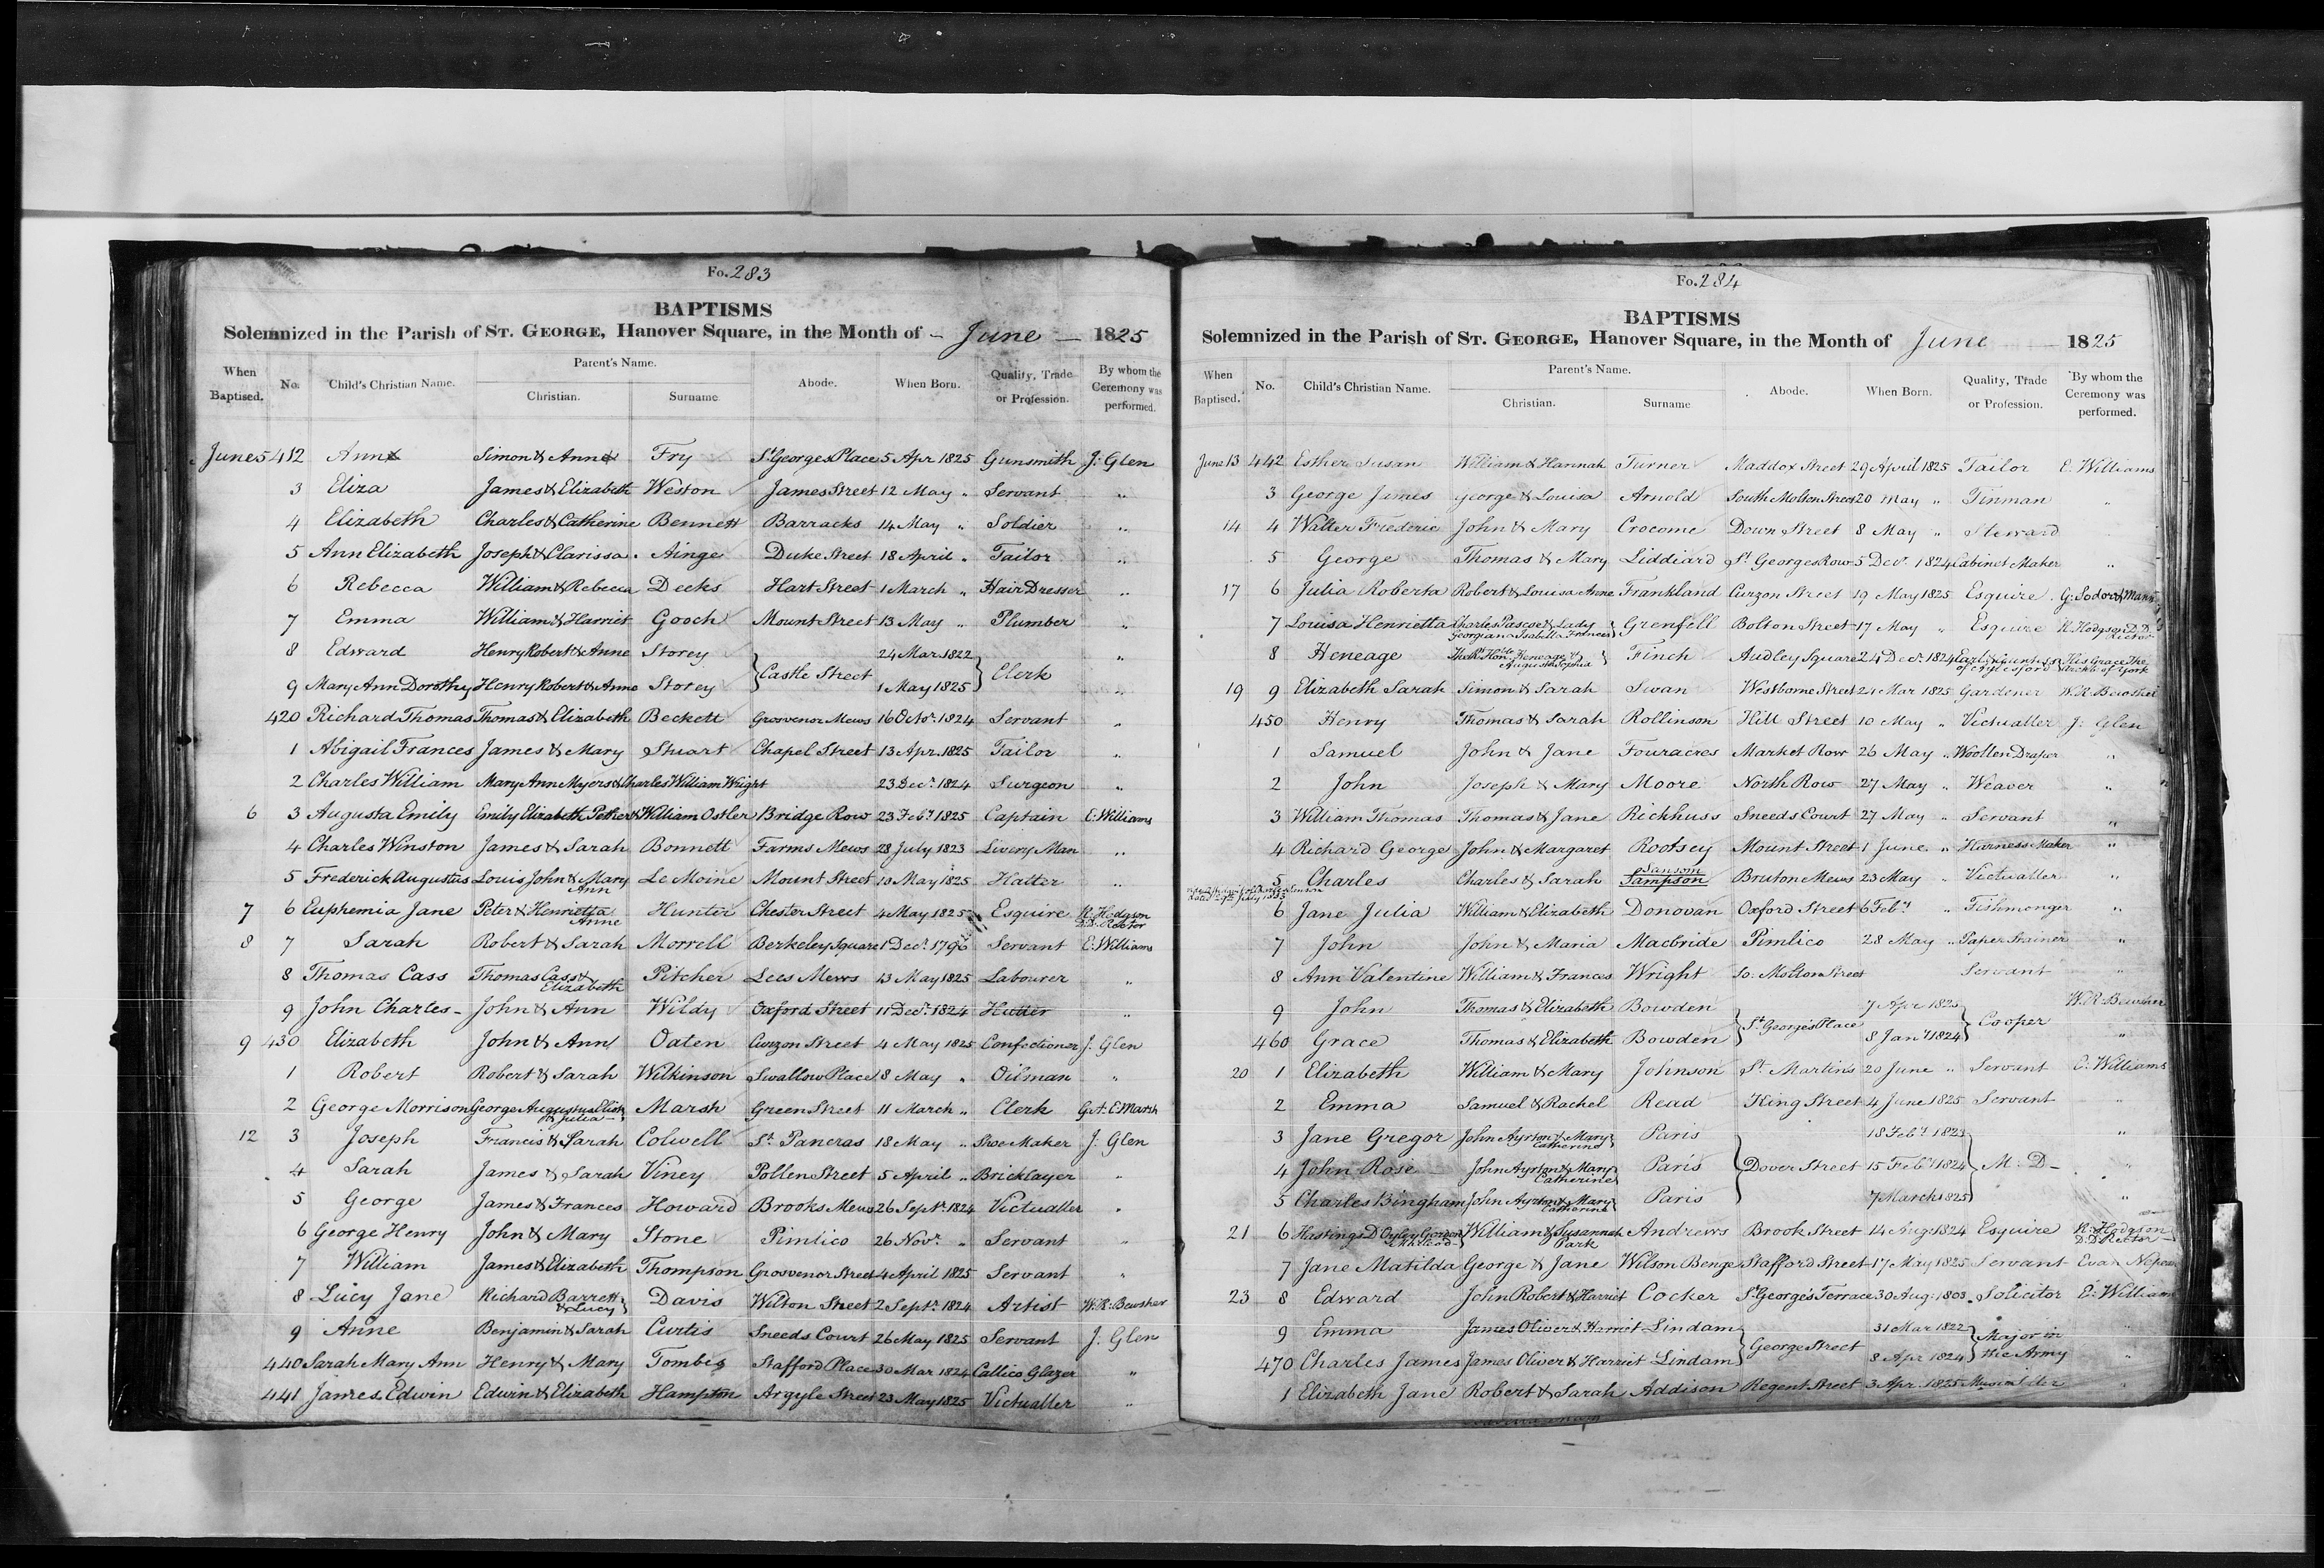 Fo. 283
BAPTISMS
Solemnized in the Parish of ST. GEORGE, Hanover Square, in the Month of - June - 1825
When Baptised. No. Child's Christian Name. Parent's Name. Christian. Surname Abode. When Born. Quality, Trade or Profession. By whom the Ceremony was performed.
June 5 412 Ann Simon & Ann Fry St Georges Place 5 Apr 1825 Gunsmith J: Glen
3 Eliza James & Elizabeth Weston James Street 12 May " Servant "
4 Elizabeth Charles & Catherine Bennett Barracks 14 May " Soldier "
5 Ann Elizabeth Joseph & Clarissa Ainge Duke Street 18 April " Tailor "
6 Rebecca William & Rebecca Deeks Hart Street 1 March " Hair Dresser "
7 Emma William & Harriet Gooch Mount Street 13 May " Plumber "
8 Edward Henry Robert & Anne Storey Castle Street 24 Mar 1822 Clerk "
9 Mary Ann Dorothy Henry Robert & Anne Storey 1 May 1825 "
420 Richard Thomas Thomas & Elizabeth Beckett Grosvenor Mews 16 Octr. 1824 Servant "
1 Abigail Frances James & Mary Stuart Chapel Street 13 Apr. 1825 Tailor "
2 Charles William Mary Anne Myers & Charles William Wright 23 Decr. 1824 Surgeon "
6 3 Augusta Emily Emily Elizabeth Pether & William Ostler Bridge Row 23 Feby 1825 Captain E: Williams
4 Charles Winston James & Sarah Bonnett Farms Mews 28 July 1823 Livery Man "
5 Frederick Augustus Louis John & Mary Ann Le Moine Mount Street 10 May 1825 Hatter "
7 6 Euphemia Jane Peter & Henrietta Anne Hunter Chester Street 4 May 1825 Esquire R: Hodgson D.D. Rector
8 7 Sarah Robert & Sarah Morrell Berkeley Square 1 Decr. 1796 Servant E: Williams
8 Thomas Cass Thomas Cass & Elizabeth Pitcher Lees Mews 13 May 1825 Labourer "
9 John Charles - John & Ann Wildy Oxford Street 11 Decr. 1824 Hatter "
9 430 Elizabeth John & Ann Oaten Curzon Street 4 May 1825 Confectioner J: Glen
1 Robert Robert & Sarah Wilkinson Swallow Place 8 May " Oilman "
2 George Morrison George Augustus Eliot & Julia Marsh Green Street 11 March " Clerk G.A.E. Marsh
12 3 Joseph Francis & Sarah Colwell St. Pancras 18 May " Shoe Maker J: Glen
4 Sarah James & Sarah Viney Pollen Street 5 April " Bricklayer "
5 George James & Frances Howard Brooks Mews 26 Septr. 1824 Victualler "
6 George Henry John & Mary Stone Pimlico 26 Novr. " Servant "
7 William James & Elizabeth Thompson Grosvenor Street 4 April 1825 Servant "
8 Lucy Jane Richard Barrett & Lucy Davis Wilton Street 2 Septr. 1824 Artist W.R. Bewsher
9 Anne Benjamin & Sarah Curtis Sneeds Court 26 May 1825 Servant J: Glen
440 Sarah Mary Ann Henry & Mary Tombs Stafford Place 30 Mar 1824 Callico Glazer "
441 James Edwin Edwin & Elizabeth Hampton Argyle Street 23 May 1825 Victualler "
Fo. 284
BAPTISMS
Solemnized in the Parish of ST. GEORGE, Hanover Square, in the Month of June 1825
When Baptised. No. Child's Christian Name. Parent's Name. Christian. Surname Abode. When Born. Quality, Trade or Profession. By whom the Ceremony was performed.
June 13 442 Esther Susan William & Hannah Turner Maddox Street 29 April 1825 Tailor E: Williams
3 George James George & Louisa Arnold South Molton Street 20 May " Tinman "
14 4 Walter Frederic John & Mary Crocome Down Street 8 May " Steward
5 George Thomas & Mary Liddiard St. Georges Row 5 Decr. 1824 Cabinet Maker "
17 6 Julia Roberta Robert & Louisa Anne Frankland Curzon Street 19 May 1825 Esquire G: Sodor & Mann
7 Louisa Henrietta Charles Pascoe & Lady Georgiana Isabella Frances Grenfell Bolton Street 17 May " Esquire R. Hodgson D.D. Rector
8 Heneage The Rt. Honble. Heneage & Augusta Sophia Finch Audley Square 24 Decr. 1824 Earl & Countess of Aylesford His Grace The Archb. of York
19 9 Elizabeth Sarah Simon & Sarah Swan Westborne Street 21 Mar 1825 Gardener W.R. Bewsher
450 Henry Thomas & Sarah Rollinson Hill Street 10 May " Victualler J: Glen
1 Samuel John & Jane Fouracres Market Row 26 May " Woollen Draper "
2 John Joseph & Mary Moore North Row 27 May " Weaver "
3 William Thomas Thomas & Jane Richhuss Sneeds Court 27 May " Servant "
4 Richard George John & Margaret Rootsey Mount Street 1 June " Harness Maker "
5 Charles Charles & Sarah Sansom Sampson Bruton Mews 23 May " Victualler "
6 Jane Julia William & Elizabeth Donovan Oxford Street 6 Feby " Fishmonger "
7 John John & Maria Macbride Pimlico 28 May " Paper Stainer "
8 Ann Valentine William & Frances Wright So: Molton Street Servant "
9 John Thomas & Elizabeth Bowden St. George's Place 7 Apr 1825 Cooper W.R. Bewsher
460 Grace Thomas & Elizabeth Bowden 8 Jany 1824 "
20 1 Elizabeth William & Mary Johnson St. Martins 20 June " Servant E: Williams
2 Emma Samuel & Rachel Read King Street 4 June 1825 Servant "
3 Jane Gregor John Ayrton & Mary Catherine Paris 18 Feby 1823 "
4 John Rose John Ayrton & Mary Catherine Paris Dover Street 15 Feby 1824 M: D- "
5 Charles Bingham John Ayrton & Mary Catherine Paris 7 March 1825 "
21 6 Hastings D'Oyley Gordon William & Susannah Park Andrews Brook Street 14 Aug. 1824 Esquire R: Hodgson D.D. Rector
7 Jane Matilda George & Jane Wilson Benge Stafford Street 17 May 1825 Servant Evan Nepean
23 8 Edward John Robert & Harriet Cocker St. George's Terrace 30 Aug: 1803 Solicitor E: Williams
9 Emma James Oliver & Harriet Lindam George Street 31 Mar 1822 Major in the Army "
470 Charles James James Oliver & Harriet Lindam 8 Apr 1824 "
1 Elizabeth Jane Robert & Sarah Addison Regent Street 3 Apr. 1825 "